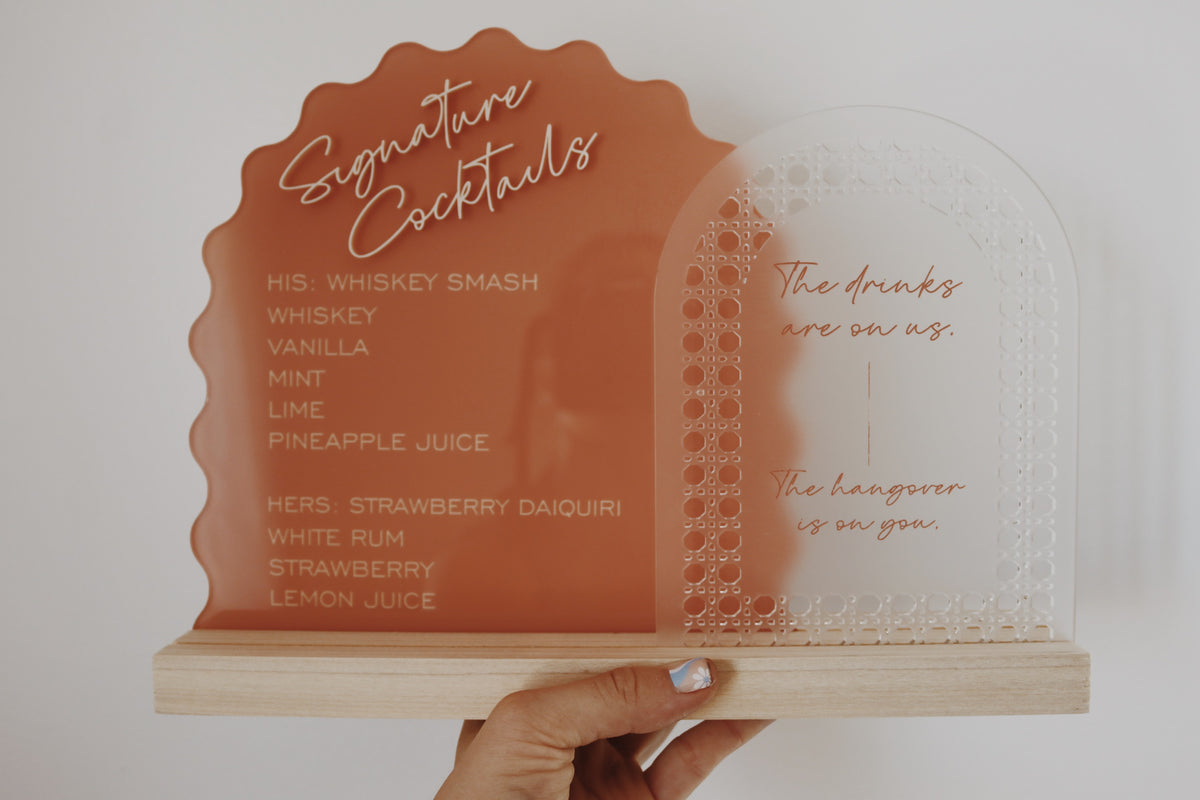 Signature
Cocktails
HIS: WHISKEY SMASH
WHISKEY
VANILLA
MINT
LIME
PINEAPPLE JUICE
HERS: STRAWBERRY DAIQUIRI
WHITE RUM
STRAWBERRY
LEMON JUICE
The drinks
are on us.
The hangover
is on you.